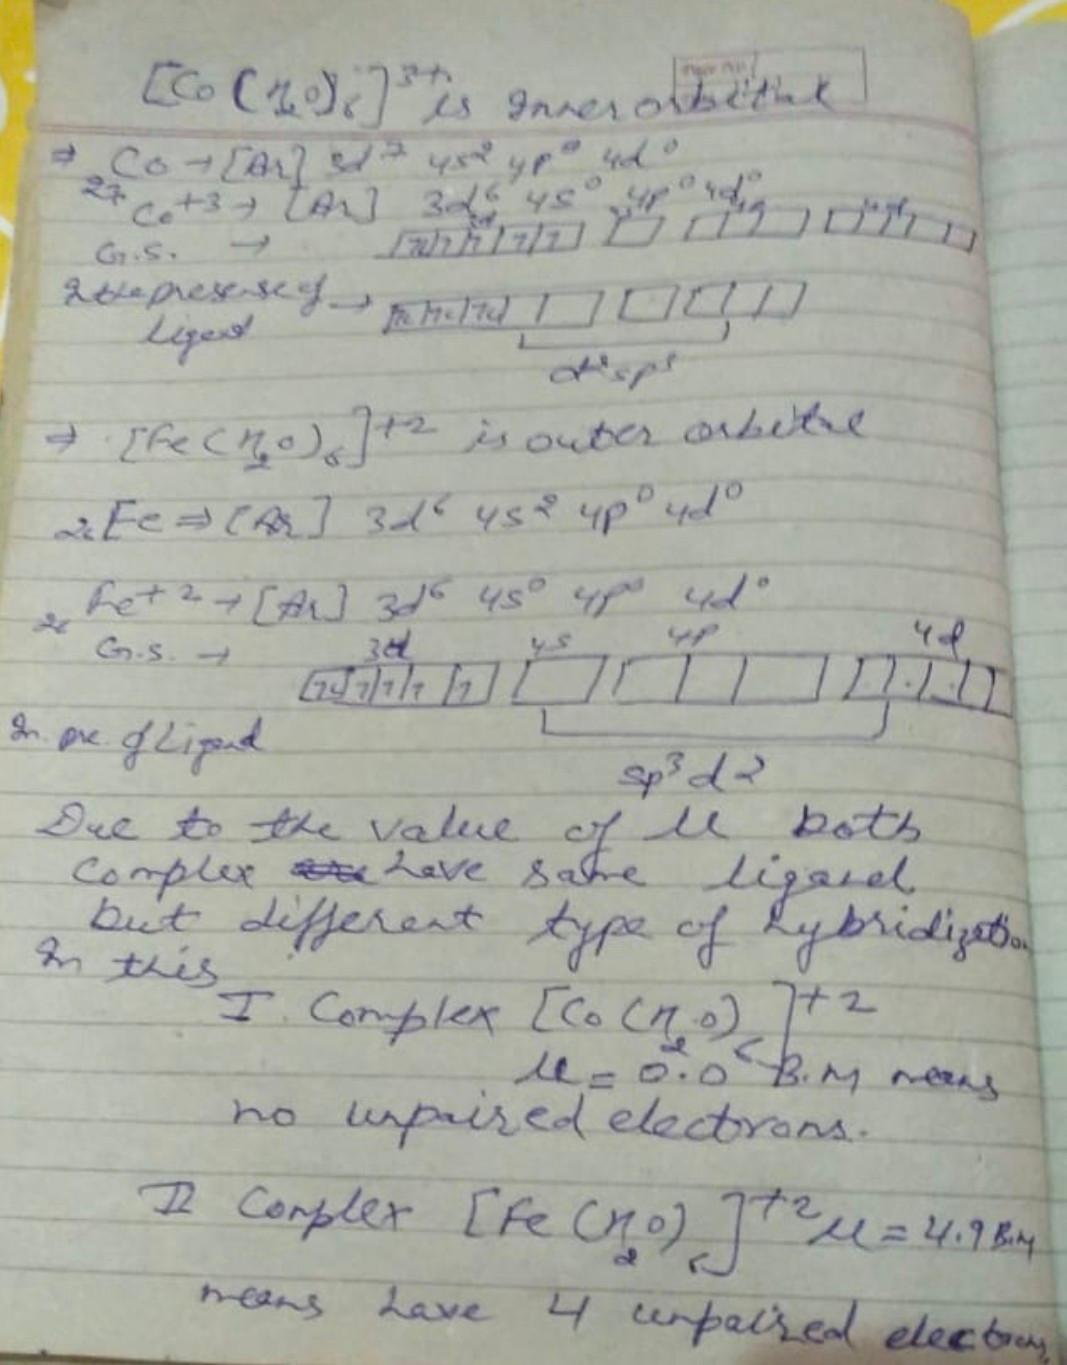 [Co(H2O)6]3+ is Inner orbital
⇒ Co → [Ar] 3d7 4s2 4p0 4d0
27 Co+3 → [Ar] 3d6 4s0 4p0 4d0
G.S. →
In the presense of → 
ligand
d2sp3
⇒ [Fe(H2O)6]+2 is outer orbital
26 Fe ⇒ [Ar] 3d6 4s2 4p0 4d0
26 Fe+2 → [Ar] 3d6 4s0 4p0 4d0
G.S. → 3d 4s 4p 4d
In pre. of Ligand
sp3d2
Due to the value of μ both
complex have same ligand
but different type of hybridization
In this
I Complex [Co(H2O)6]+2
μ = 0.0 B.M means
no unpaired electrons.
II Complex [Fe(H2O)6]+2 μ = 4.9 B.M
means have 4 unpaired electrons